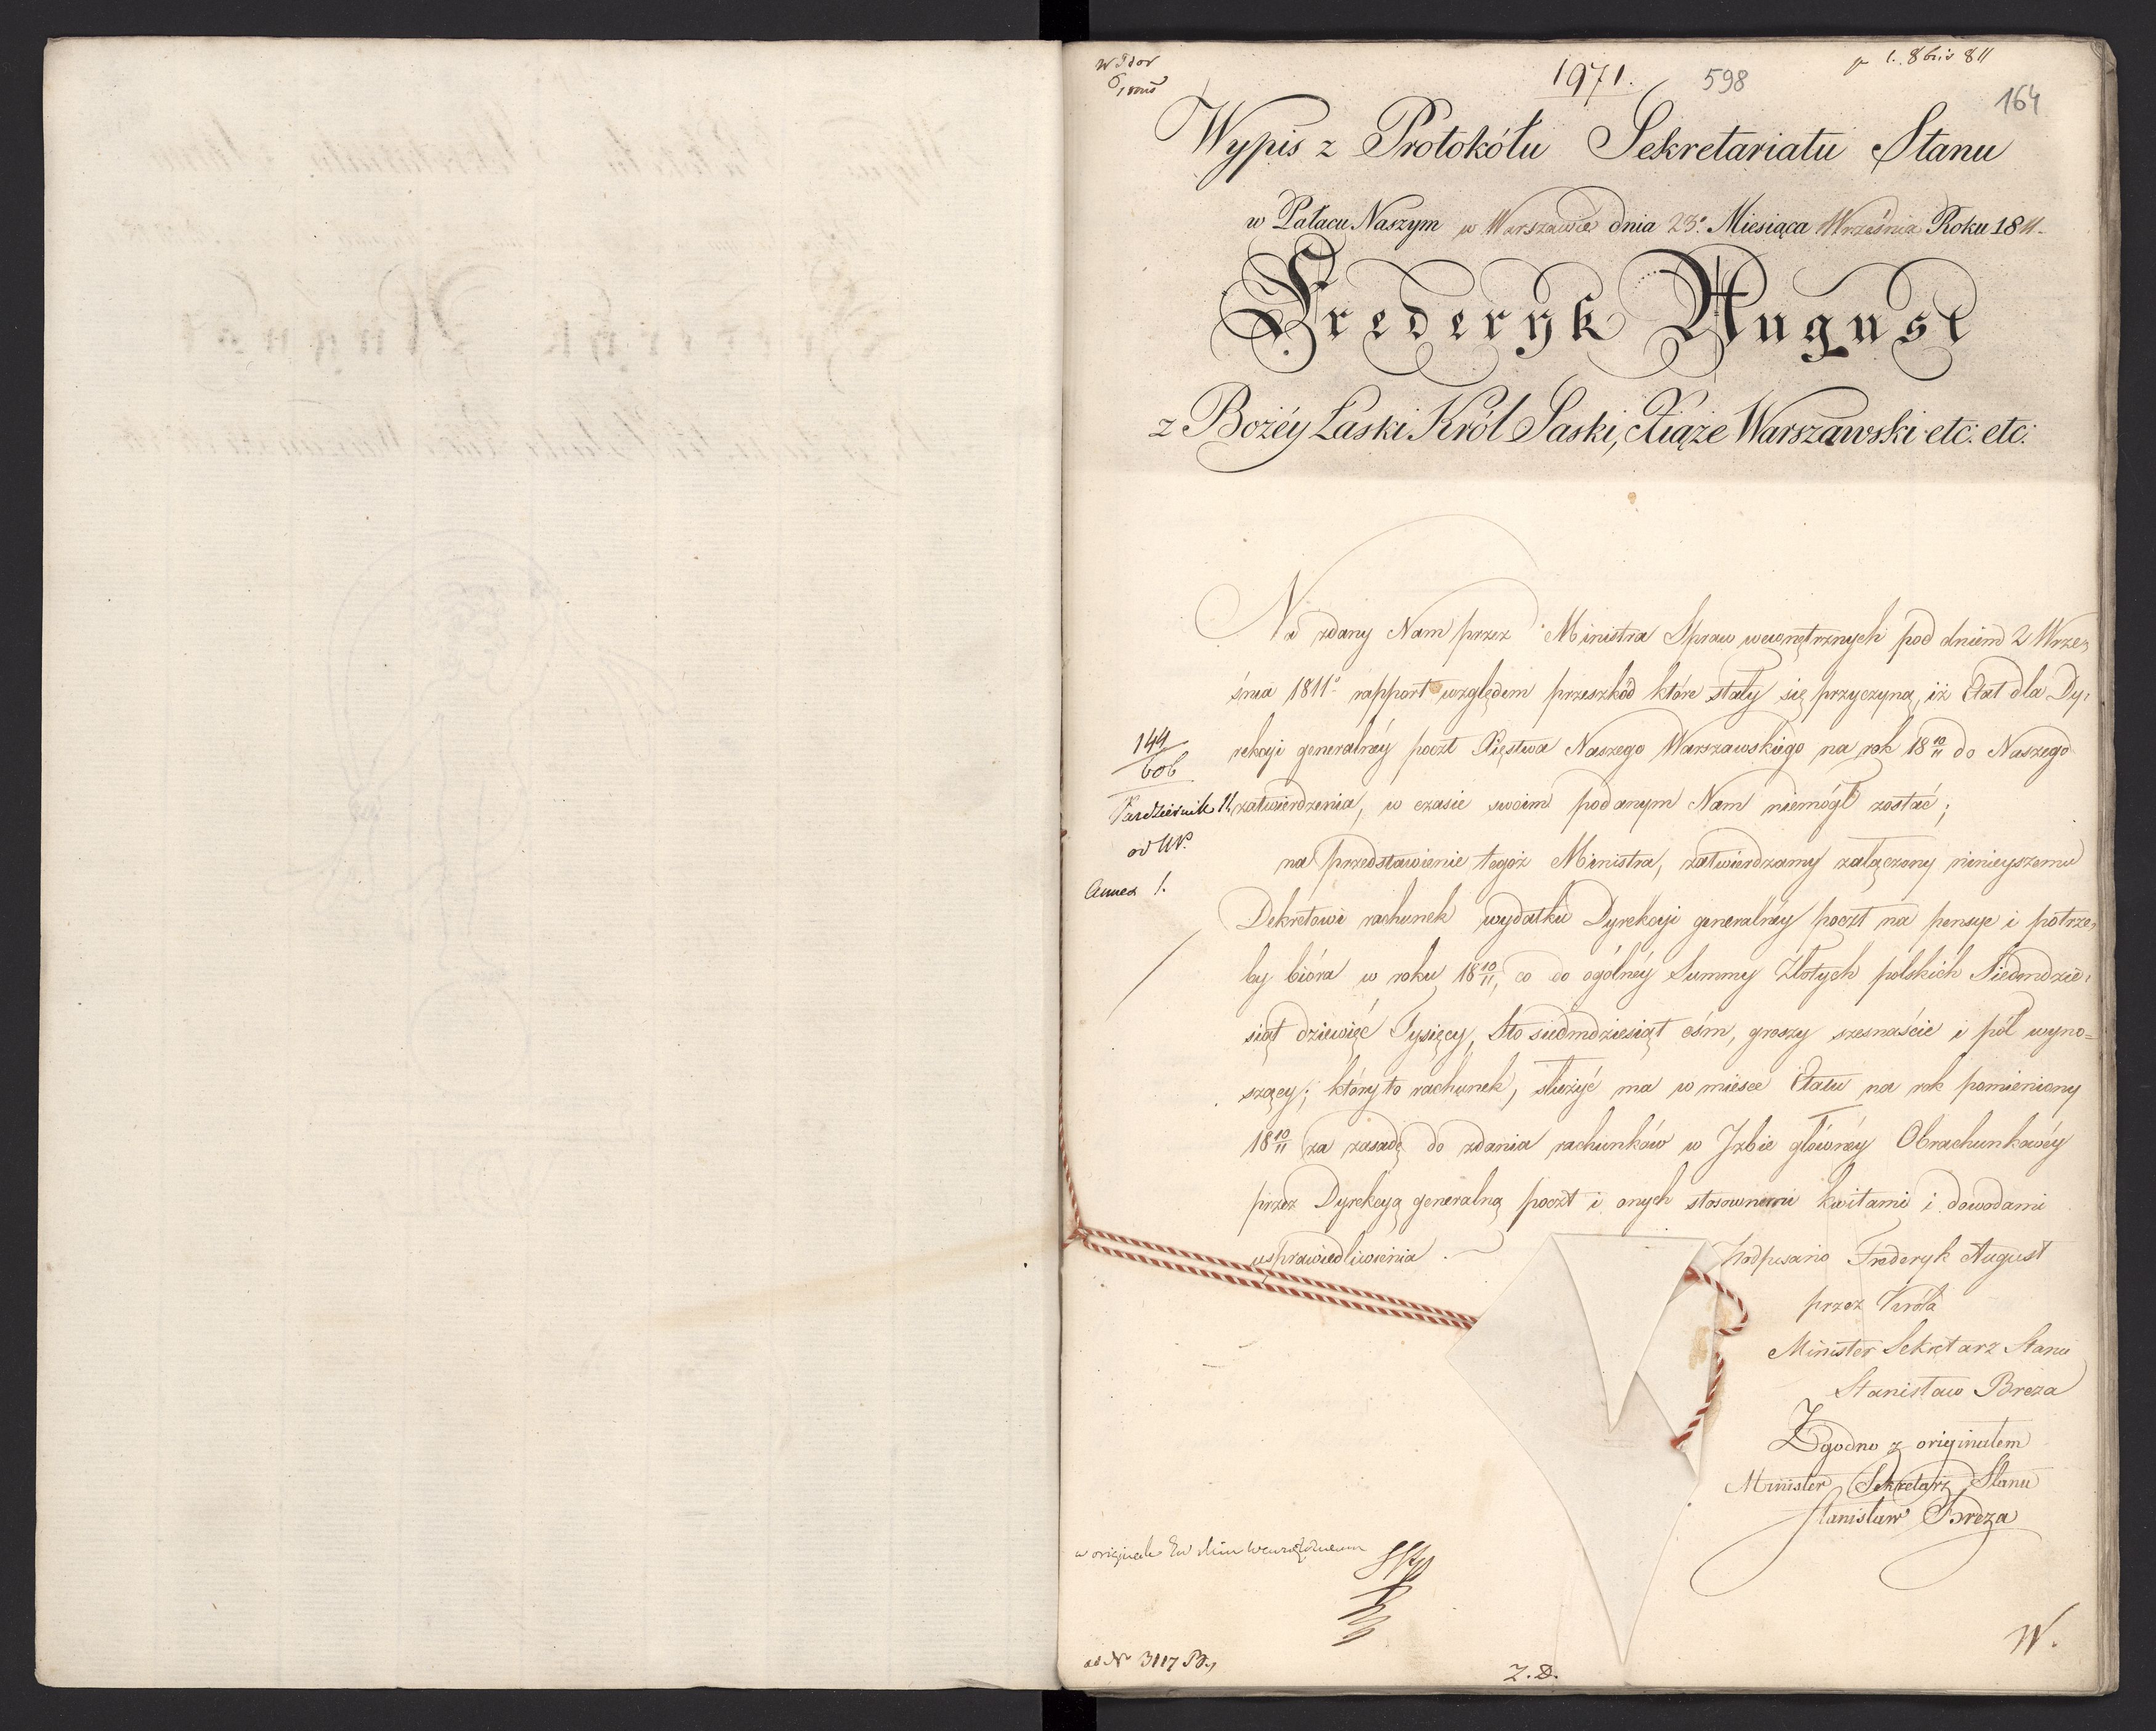 1971.
598
164
Wypis z Protokółu Sekretariatu Stanu
w Pałacu Naszym w Warszawie dnia 23º Miesiąca Września Roku 1811.
Frederyk August
z Bożéy Łaski Król Saski, Xiąże Warszawski etc: etc:
Na zdany Nam przez Ministra Spraw wewnętrznych pod dniem 2 Wrze,
śnia 1811º rapport względem przeszkód które stały się przyczyną, iż Etat dla Dy,
rekcyi generalnéy poczt Xięstwa Naszego Warszawskiego na rok 18 10/11 do Naszego
zatwierdzenia, w czasie swoim podanym Nam niemógł zostać;
na przedstawienie tegoż Ministra, zatwierdzamy załączony ninieyszemu
Dekretowi rachunek wydatku Dyrekcyi generalnéy poczt na pensye i potrze,
by bióra w roku 18 10/11, co do ogólnéy Summy Złotych polskich Siedmdzie,
siąt dziewięć Tysięcy, Sto siedmdziesiąt ośm, groszy szesnaście i pół wyno=
szący; który to rachunek, służyć ma w miesce Etatu na rok pomieniony
18 10/11 za zasadę do zdania rachunków w Izbie głównéy Obrachunkowéy
przez Dyrekcyą generalną poczt i onych stosownemi kwitami i dowodami
usprawiedliwienia.
144/606
Październik 11
Annex 1.
podpisano Frederyk August
przez Króla
Minister Sekretarz Stanu
Stanisław Breza
Zgodno z originałem
Minister Sekretarz Stanu
Stanisław Breza
w originale
W.
ad Nº 3117
Z.D.